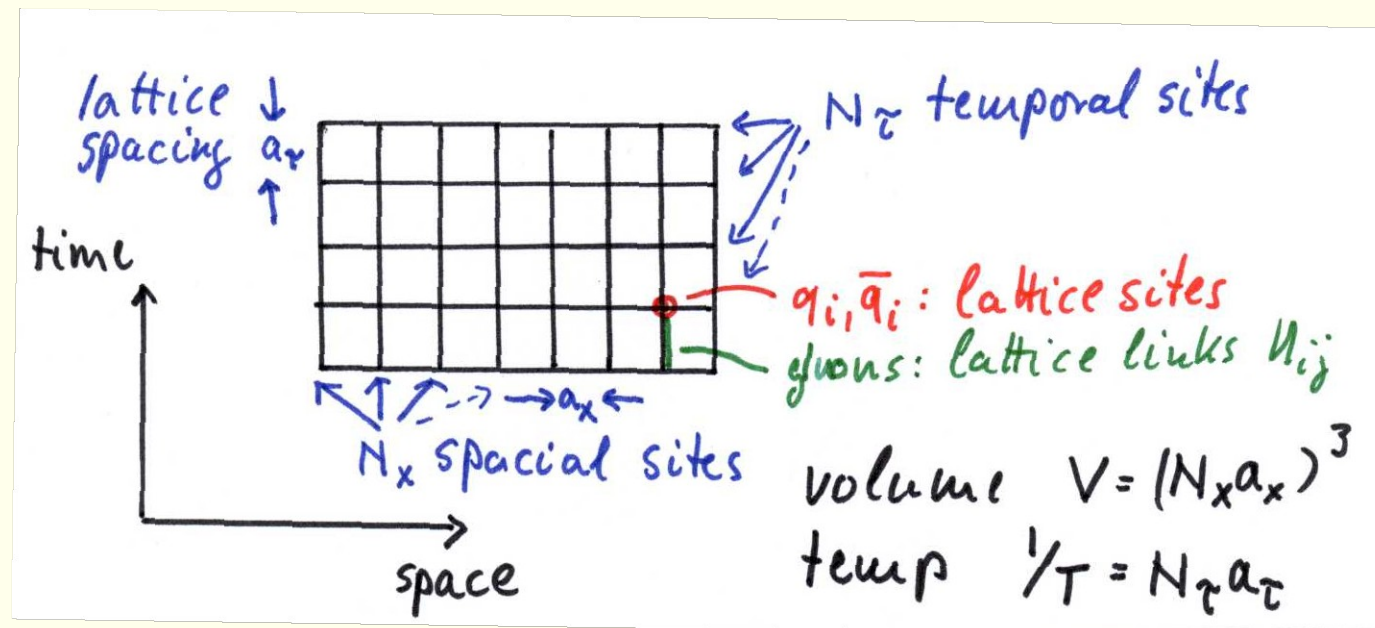 lattice
spacing aτ
Nτ temporal sites
time
qi, q̄i : lattice sites
gluons: lattice links Uij
ax
Nx spacial sites
volume V = (Nxax)³
temp 1/T = Nτaτ
space